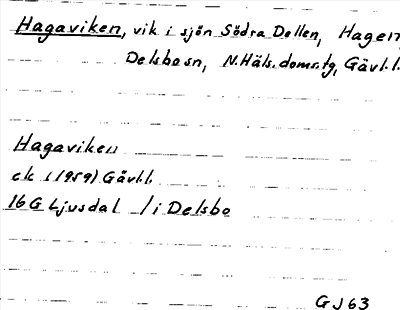 Hagaviken, vik i sjön Södra Dellen, Hagen,
Delsbosn, N. Häls. domsg, Gävl.l.
Hagaviken
ek (1959) Gävl.l.
16G Ljusdal / i Delsbo
GJ63